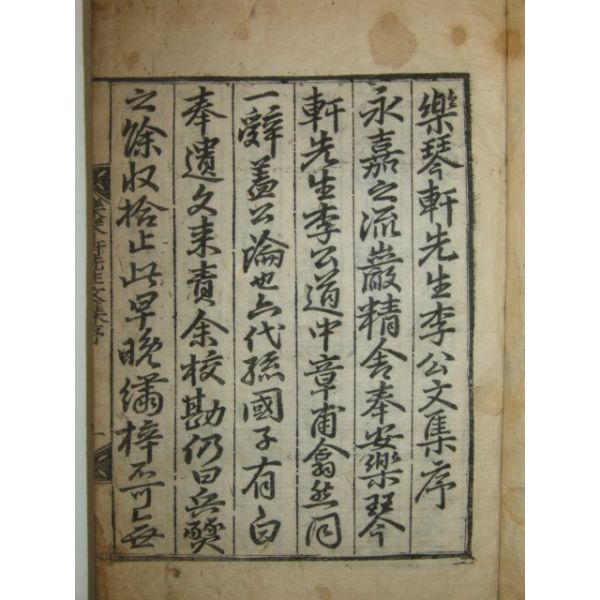 樂琴軒先生李公文集序
永嘉之流巖精舍奉安樂琴
軒先生李公道中章甫翕然同
一辭盖公論也六代孫國子有白
奉遺文来責余校勘仍曰兵燹
之餘收拾止此早晩繡梓不可無
樂琴軒先生文集序
一